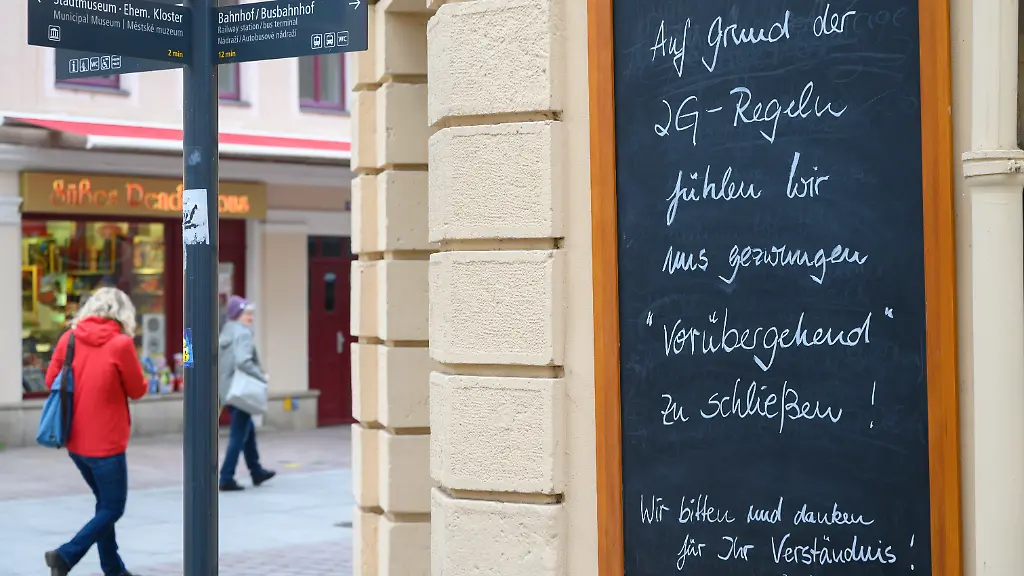 Stadtmuseum · Ehem. Kloster
Municipal Museum | Městské muzeum
2 min
Bahnhof / Busbahnhof
Railway station / bus terminal
Nádraží / Autobusové nádraží
WC
12 min
Süßes Rendezvous
Auf Grund der
2G-Regeln
fühlen wir
uns gezwungen
"vorübergehend"
zu schließen!
Wir bitten und danken
für Ihr Verständnis!